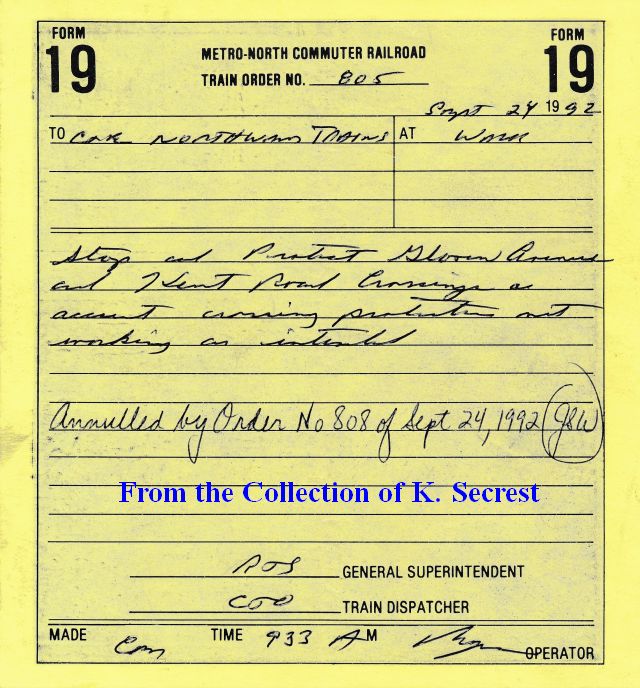 FORM 19
METRO-NORTH COMMUTER RAILROAD
FORM 19
TRAIN ORDER NO. 805
Sept 24 1992
TO NORTHWARD TRAINS AT
Stop and Protect Glover Avenue
and Kent Road Crossings
account crossing protection not
working as intended
Annulled by Order No 808 of Sept 24, 1992 JSW
From the Collection of K. Secrest
GENERAL SUPERINTENDENT
TRAIN DISPATCHER
MADE Com TIME 933 A M OPERATOR